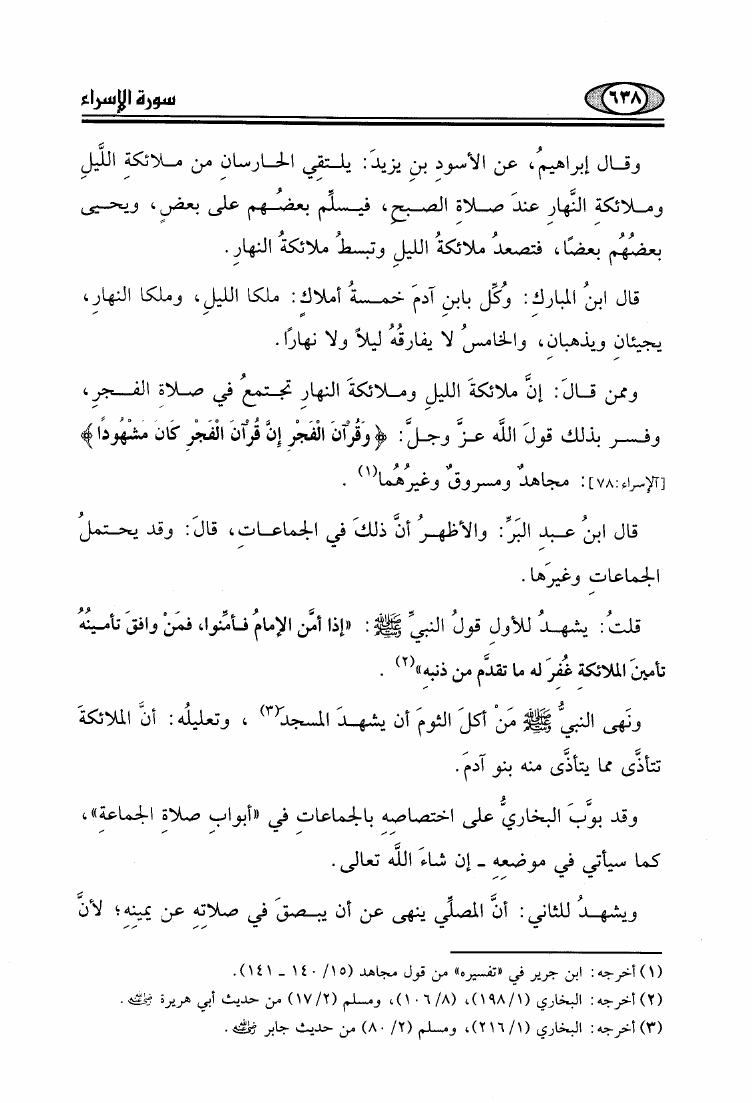 سورة الإسراء
٦٣٨
وقال إبراهيمُ، عن الأسودِ بنِ يزيدَ: يلتقِي الحارسانِ من ملائكةِ اللَّيلِ
وملائكةِ النَّهارِ عندَ صلاةِ الصبحِ، فيسلِّم بعضُهم على بعضٍ، ويحيى
بعضُهُم بعضًا، فتصعدُ ملائكةُ الليلِ وتبسطُ ملائكةُ النهارِ.
قال ابنُ المباركِ: وُكِّل بابنِ آدمَ خمسةُ أملاكٍ: ملكا الليلِ، وملكا النهارِ،
يجيئانِ ويذهبانِ، والخامسُ لا يفارقُهُ ليلاً ولا نهارًا.
وممن قالَ: إنَّ ملائكةَ الليلِ وملائكةَ النهارِ تجتمعُ في صلاةِ الفجرِ،
وفسر بذلك قولَ اللَّه عزَّ وجلَّ: ﴿وَقُرْآنَ الْفَجْرِ إِنَّ قُرْآنَ الْفَجْرِ كَانَ مَشْهُودًا﴾
[الإسراء:٧٨]: مجاهدٌ ومسروقٌ وغيرُهُما(١) .
قال ابنُ عبدِ البَرِّ: والأظهرُ أنَّ ذلكَ في الجماعاتِ، قالَ: وقد يحتملُ
الجماعاتِ وغيرَها.
قلتُ: يشهدُ للأولِ قولُ النبيِّ ﷺ: «إذا أمَّن الإمامُ فأمِّنوا، فمَنْ وافقَ تأمينُهُ
تأمينَ الملائكةِ غُفِرَ له ما تقدَّم من ذنبهِ»(٢) .
ونَهى النبيُّ ﷺ مَنْ أكلَ الثومَ أن يشهدَ المسجدَ(٣) ، وتعليلُه: أنَّ الملائكةَ
تتأذَّى مما يتأذَّى منه بنو آدمَ.
وقد بوَّبَ البخاريُّ على اختصاصِهِ بالجماعاتِ في «أبوابِ صلاةِ الجماعةِ»،
كما سيأتي في موضعِهِ ـ إن شاءَ اللَّه تعالى.
ويشهدُ للثاني: أنَّ المصلِّي ينهى عن أن يبصقَ في صلاتِه عن يمينِهِ؛ لأنَّ
(١) أخرجه: ابن جرير في «تفسيره» من قول مجاهد (١٥/ ١٤٠ ـ ١٤١).
(٢) أخرجه: البخاري (١/ ١٩٨)، (٨/ ١٠٦)، ومسلم (٢/ ١٧) من حديث أبي هريرة رضي الله عنه.
(٣) أخرجه: البخاري (١/ ٢١٦)، ومسلم (٢/ ٨٠) من حديث جابر رضي الله عنه.